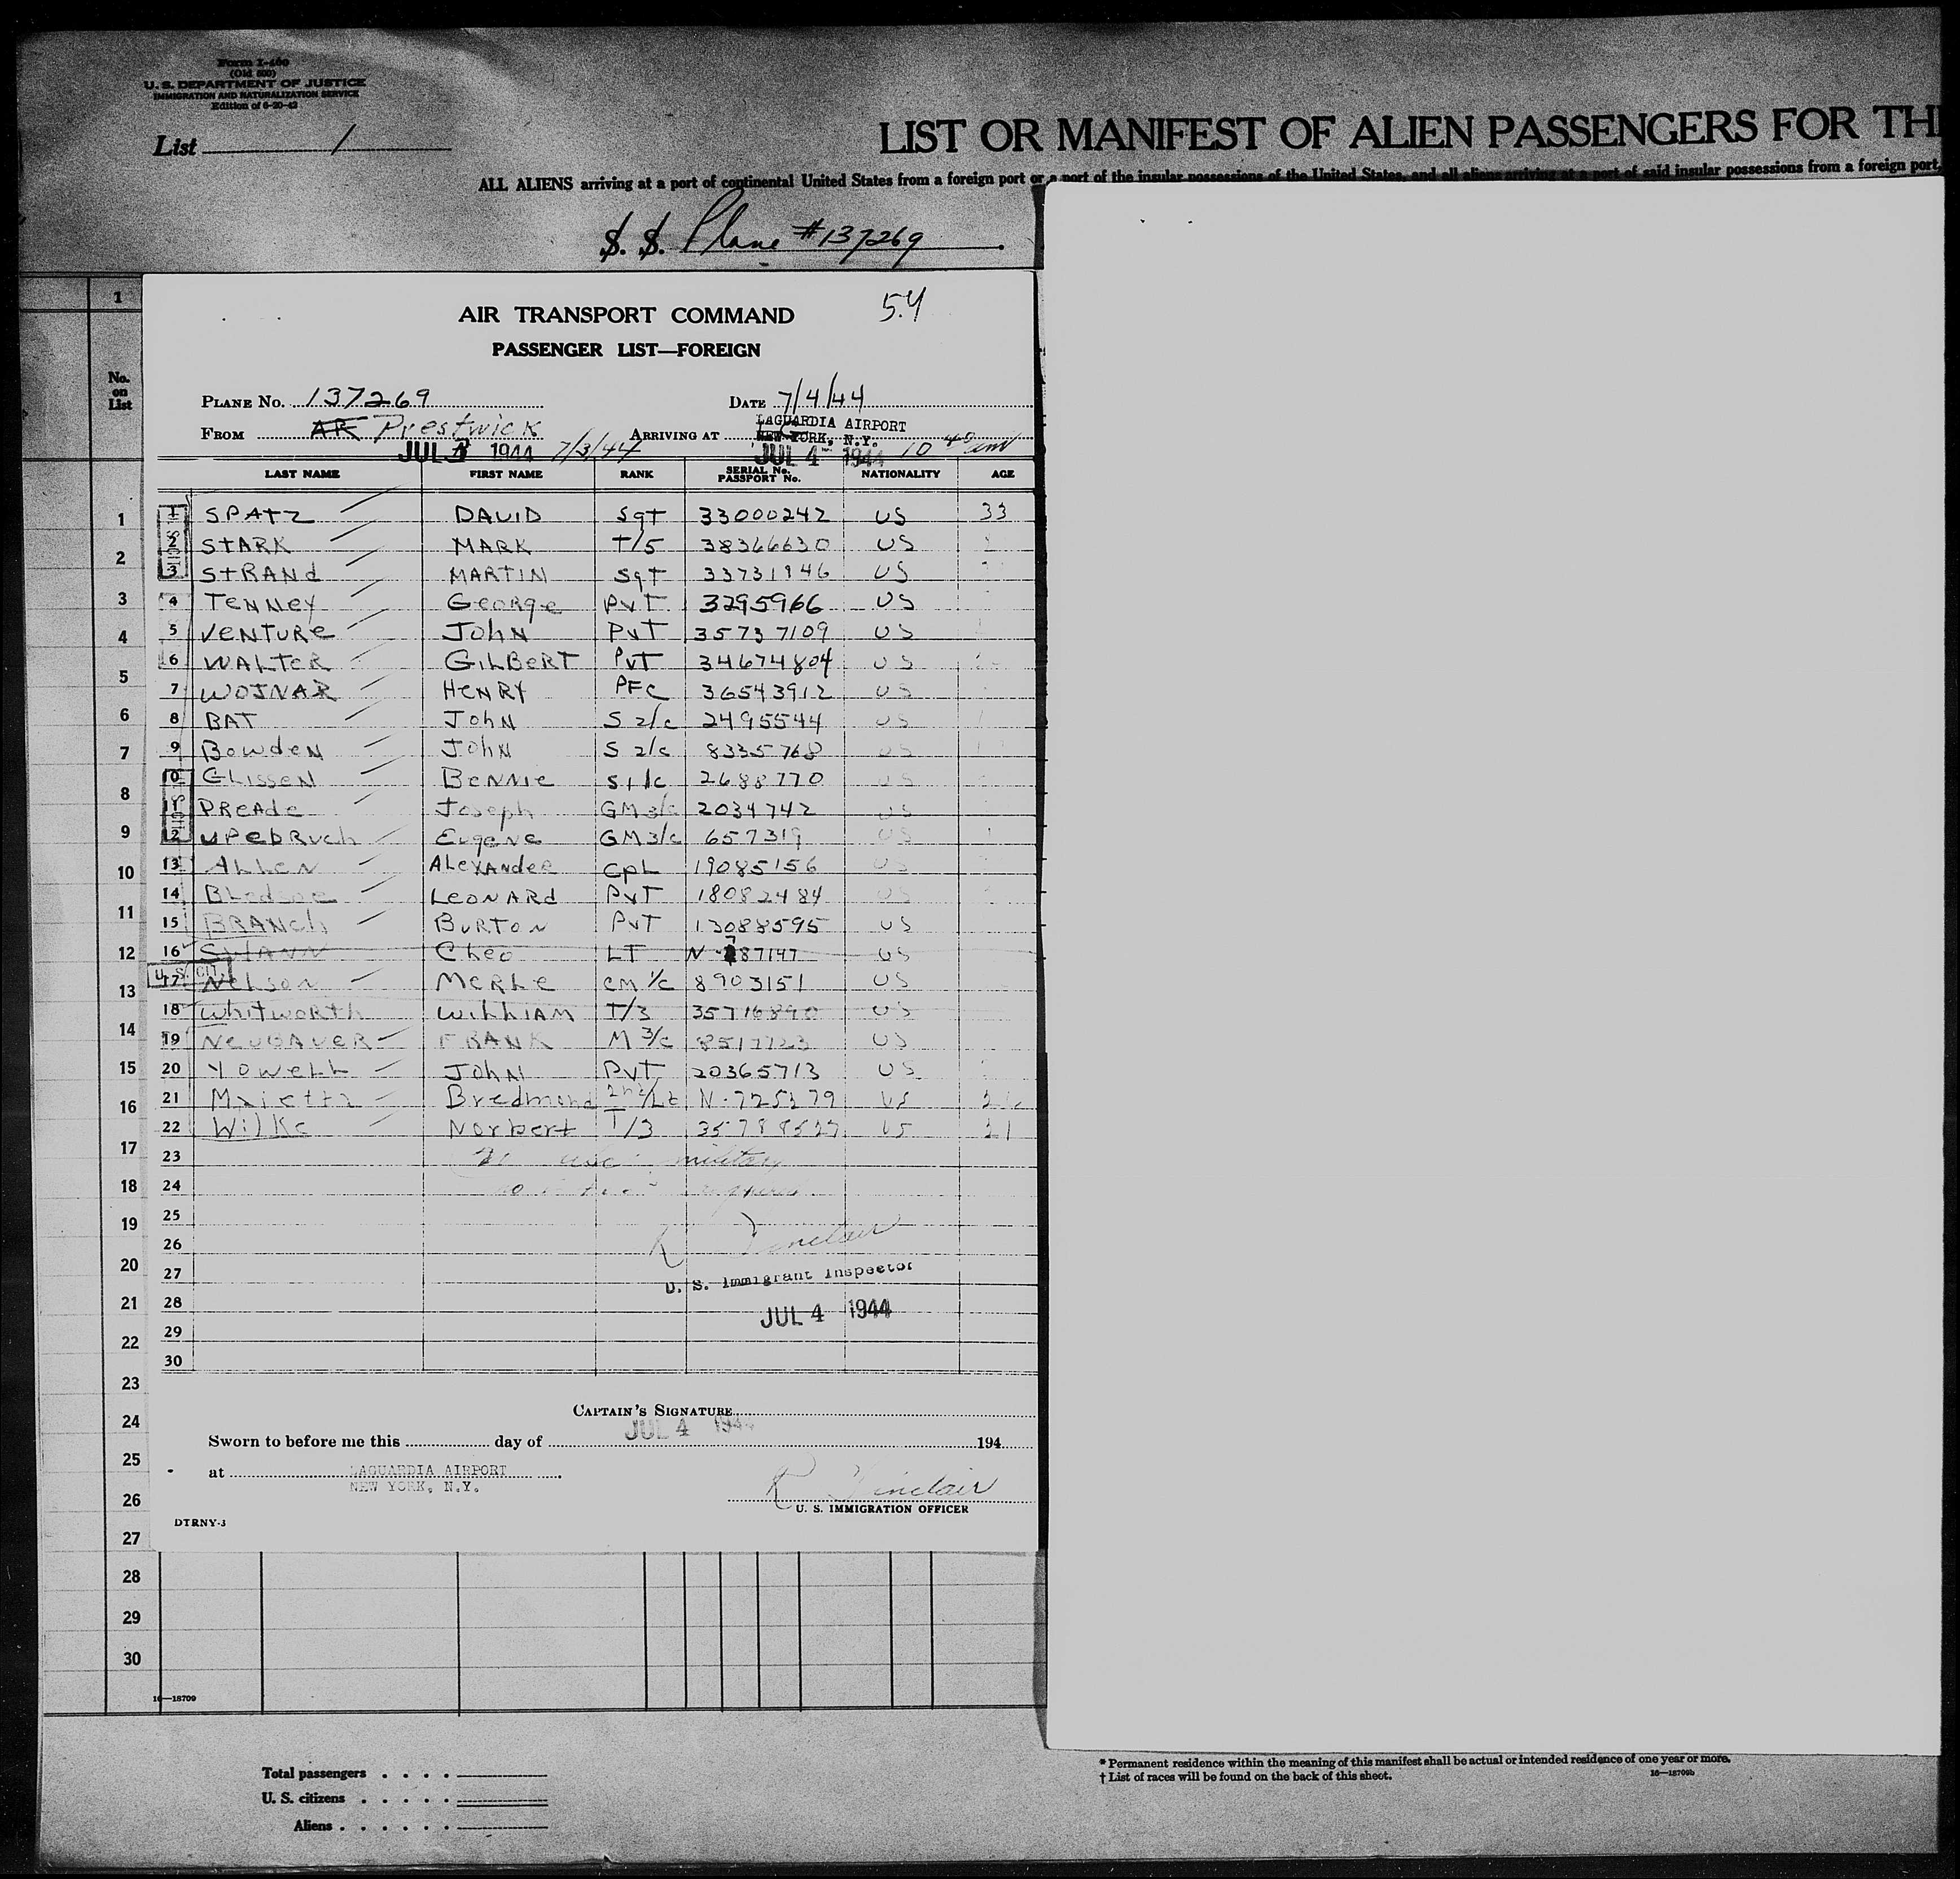 Form I-460
(Old 500)
U. S. DEPARTMENT OF JUSTICE
IMMIGRATION AND NATURALIZATION SERVICE
Edition of 6-20-42
List 1
LIST OR MANIFEST OF ALIEN PASSENGERS FOR TH
ALL ALIENS arriving at a port of continental United States from a foreign port or a port of the insular possessions of the United States, and all aliens arriving at a port of said insular possessions from a foreign port,
S. S. Plane #137269
1
No. on List
AIR TRANSPORT COMMAND 54
PASSENGER LIST—FOREIGN
PLANE No. 137269 DATE 7/4/44
FROM Prestwick ARRIVING AT LAGUARDIA AIRPORT NEW YORK, N.Y.
JUL 1944 7/3/44 JUL 4 1944 10 40
LAST NAME FIRST NAME RANK SERIAL No. PASSPORT No. NATIONALITY AGE
1 SPATZ DAVID Sgt 33000242 US 33
2 STARK MARK T/5 38366630 US
3 STRANd MARTIN Sgt 33731946 US
4 TENNEY GEORGE PVT 3295966 US
5 VENTURE JOHN PVT 35737109 US
6 WALTER GILBERT PVT 34674804 US
7 WOJNAR HENRY PFC 36543912 US
8 BAT JOHN S 2/c 2495544 US
9 BOWDEN JOHN S 2/c 8335768 US
10 GLISSEN BENNIE S1/c 2688770 US
11 PREADE Joseph GM3/c 2034742 US
12 UPEDRUCH EUGENE GM3/c 657319 US
13 ALLEN ALEXANDER CPL 19085156 US
14 BLEDSOE LEONARD PVT 18082484 US
15 BRANCH BURTON PVT 13088595 US
16 SWANN CLEO LT N 787147 US
U. S. CIT.
17 NELSON MERLE CM 1/c 8903151 US
18 WHITWORTH WILLIAM T/3 35716890 US
19 NEUGAUER FRANK M 3/c 8517723 US
20 YOWELL JOHN PVT 20365713 US
21 Maietta Bredmond 2nd/Lt N-725379 US
22 Wilke Norbert T/3 35788527 US 21
23 military
24
25
26 R Sinclair
27 U. S. Immigrant Inspector
28 JUL 4 1944
29
30
CAPTAIN'S SIGNATURE
JUL 4 1944
Sworn to before me this day of 194
at LAGUARDIA AIRPORT
NEW YORK, N.Y.
R Sinclair
U. S. IMMIGRATION OFFICER
DTRNY-3
1
2
3
4
5
6
7
8
9
10
11
12
13
14
15
16
17
18
19
20
21
22
23
24
25
26
27
28
29
30
16—18709
* Permanent residence within the meaning of this manifest shall be actual or intended residence of one year or more.
† List of races will be found on the back of this sheet. 16—18709b
Total passengers
U. S. citizens
Aliens